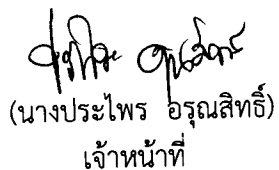 (นางประไพร อรุณสิทธิ์)
เจ้าหน้าที่